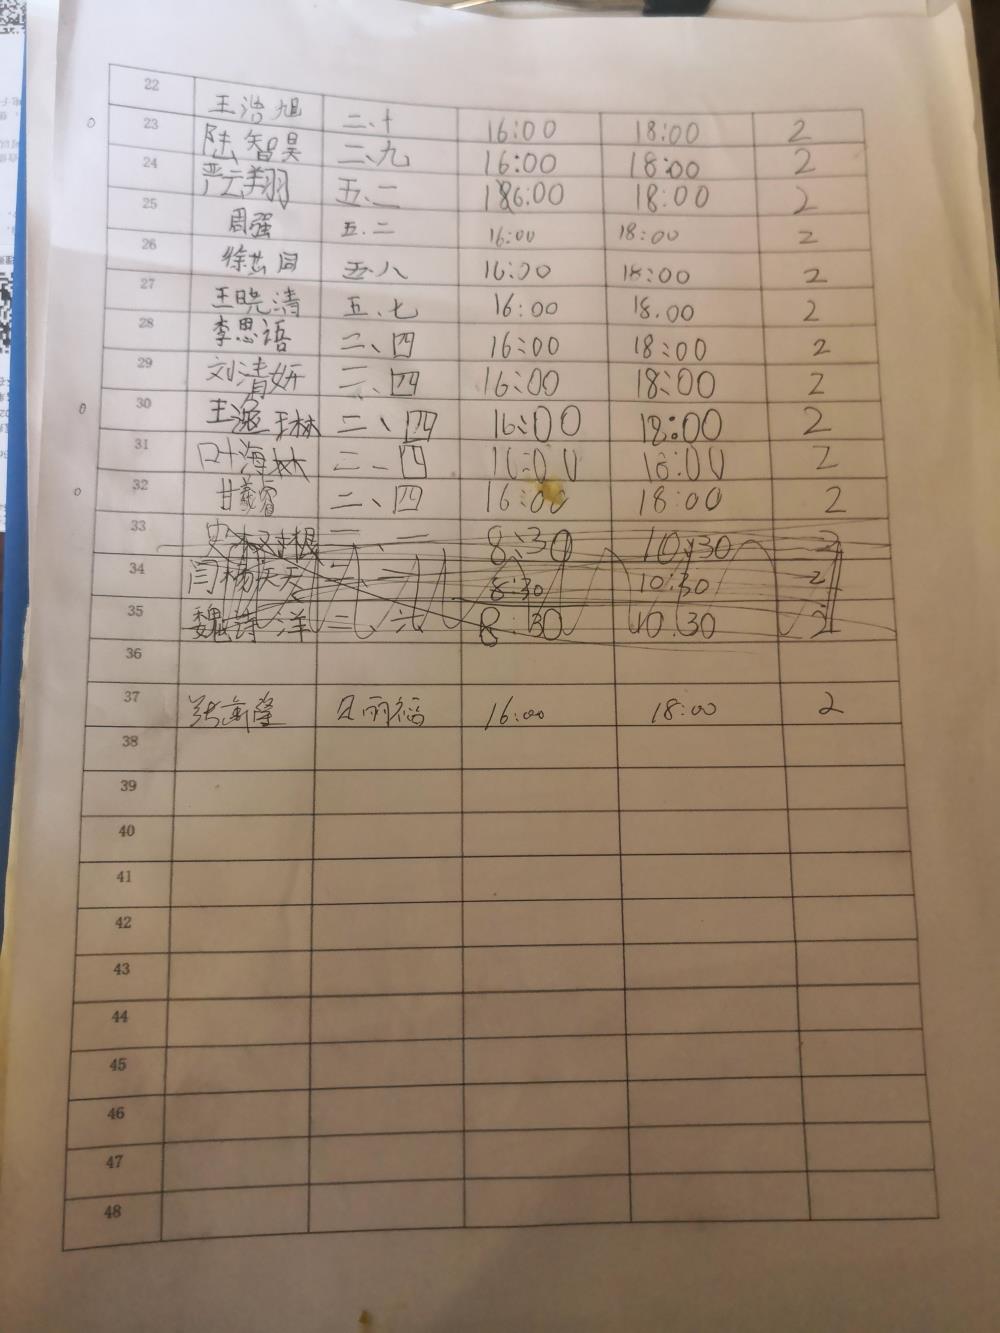 22 王浩旭 二、十 16:00 18:00 2
23 陆智昊 二、九 16:00 18:00 2
24 严云翔 五、二 16:00 18:00 2
25 周强 五、二 16:00 18:00 2
26 徐芸同 五、八 16:00 18:00 2
27 王晓清 五、七 16:00 18:00 2
28 李思语 二、四 16:00 18:00 2
29 刘清妍 二、四 16:00 18:00 2
30 王 琳 二、四 16:00 18:00 2
31 叶海林 二、四 16:00 18:00 2
32 甘 二、四 16:00 18:00 2
33 8:30 10:30 2
34 闫杨天 8:30 10:30 2
35 魏诗洋 三、六 8:30 10:30 2
36
37 张 16:00 18:00 2
38
39
40
41
42
43
44
45
46
47
48